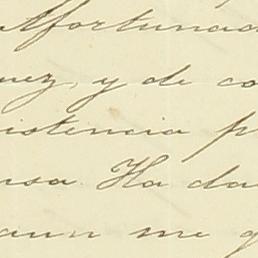 Afortunad
nez, y de co
istencia p
nsa. Ha da
aun me g